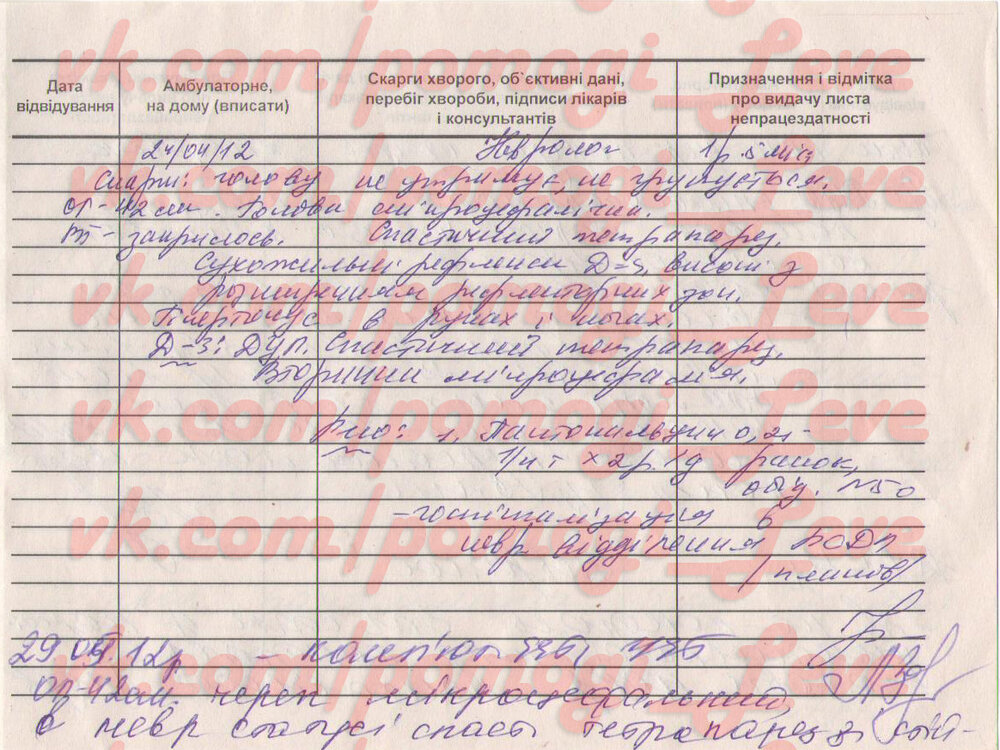 vk.com/pomogi_Leve
Дата відвідування
Амбулаторне, на дому (вписати)
Скарги хворого, об`єктивні дані, перебіг хвороби, підписи лікарів і консультантів
Призначення і відмітка про видачу листа непрацездатності
24/04/12 Невролог 1р. 5 міс
Скарги: голову не утримує, не групується.
ОГ-42см. Голова мікроцефалічна.
закрилось. Спастичний тетрапарез.
Сухожильні рефлекси D=S, високі з
розширенням рефлекторних зон.
Гіпертонус в руках і ногах.
Д-з: ДЦП. Спастичний тетрапарез.
Вторинна мікроцефалія.
Рно: 1. Пантокальцин 0,25
1/4 т х 2 р./д ранок,
обід. №50
-госпіталізація в
невр відділення
/планово/
29 12р
ОГ-42см. череп мікроцефальний
В невр статусі спаст тетрапарез зі